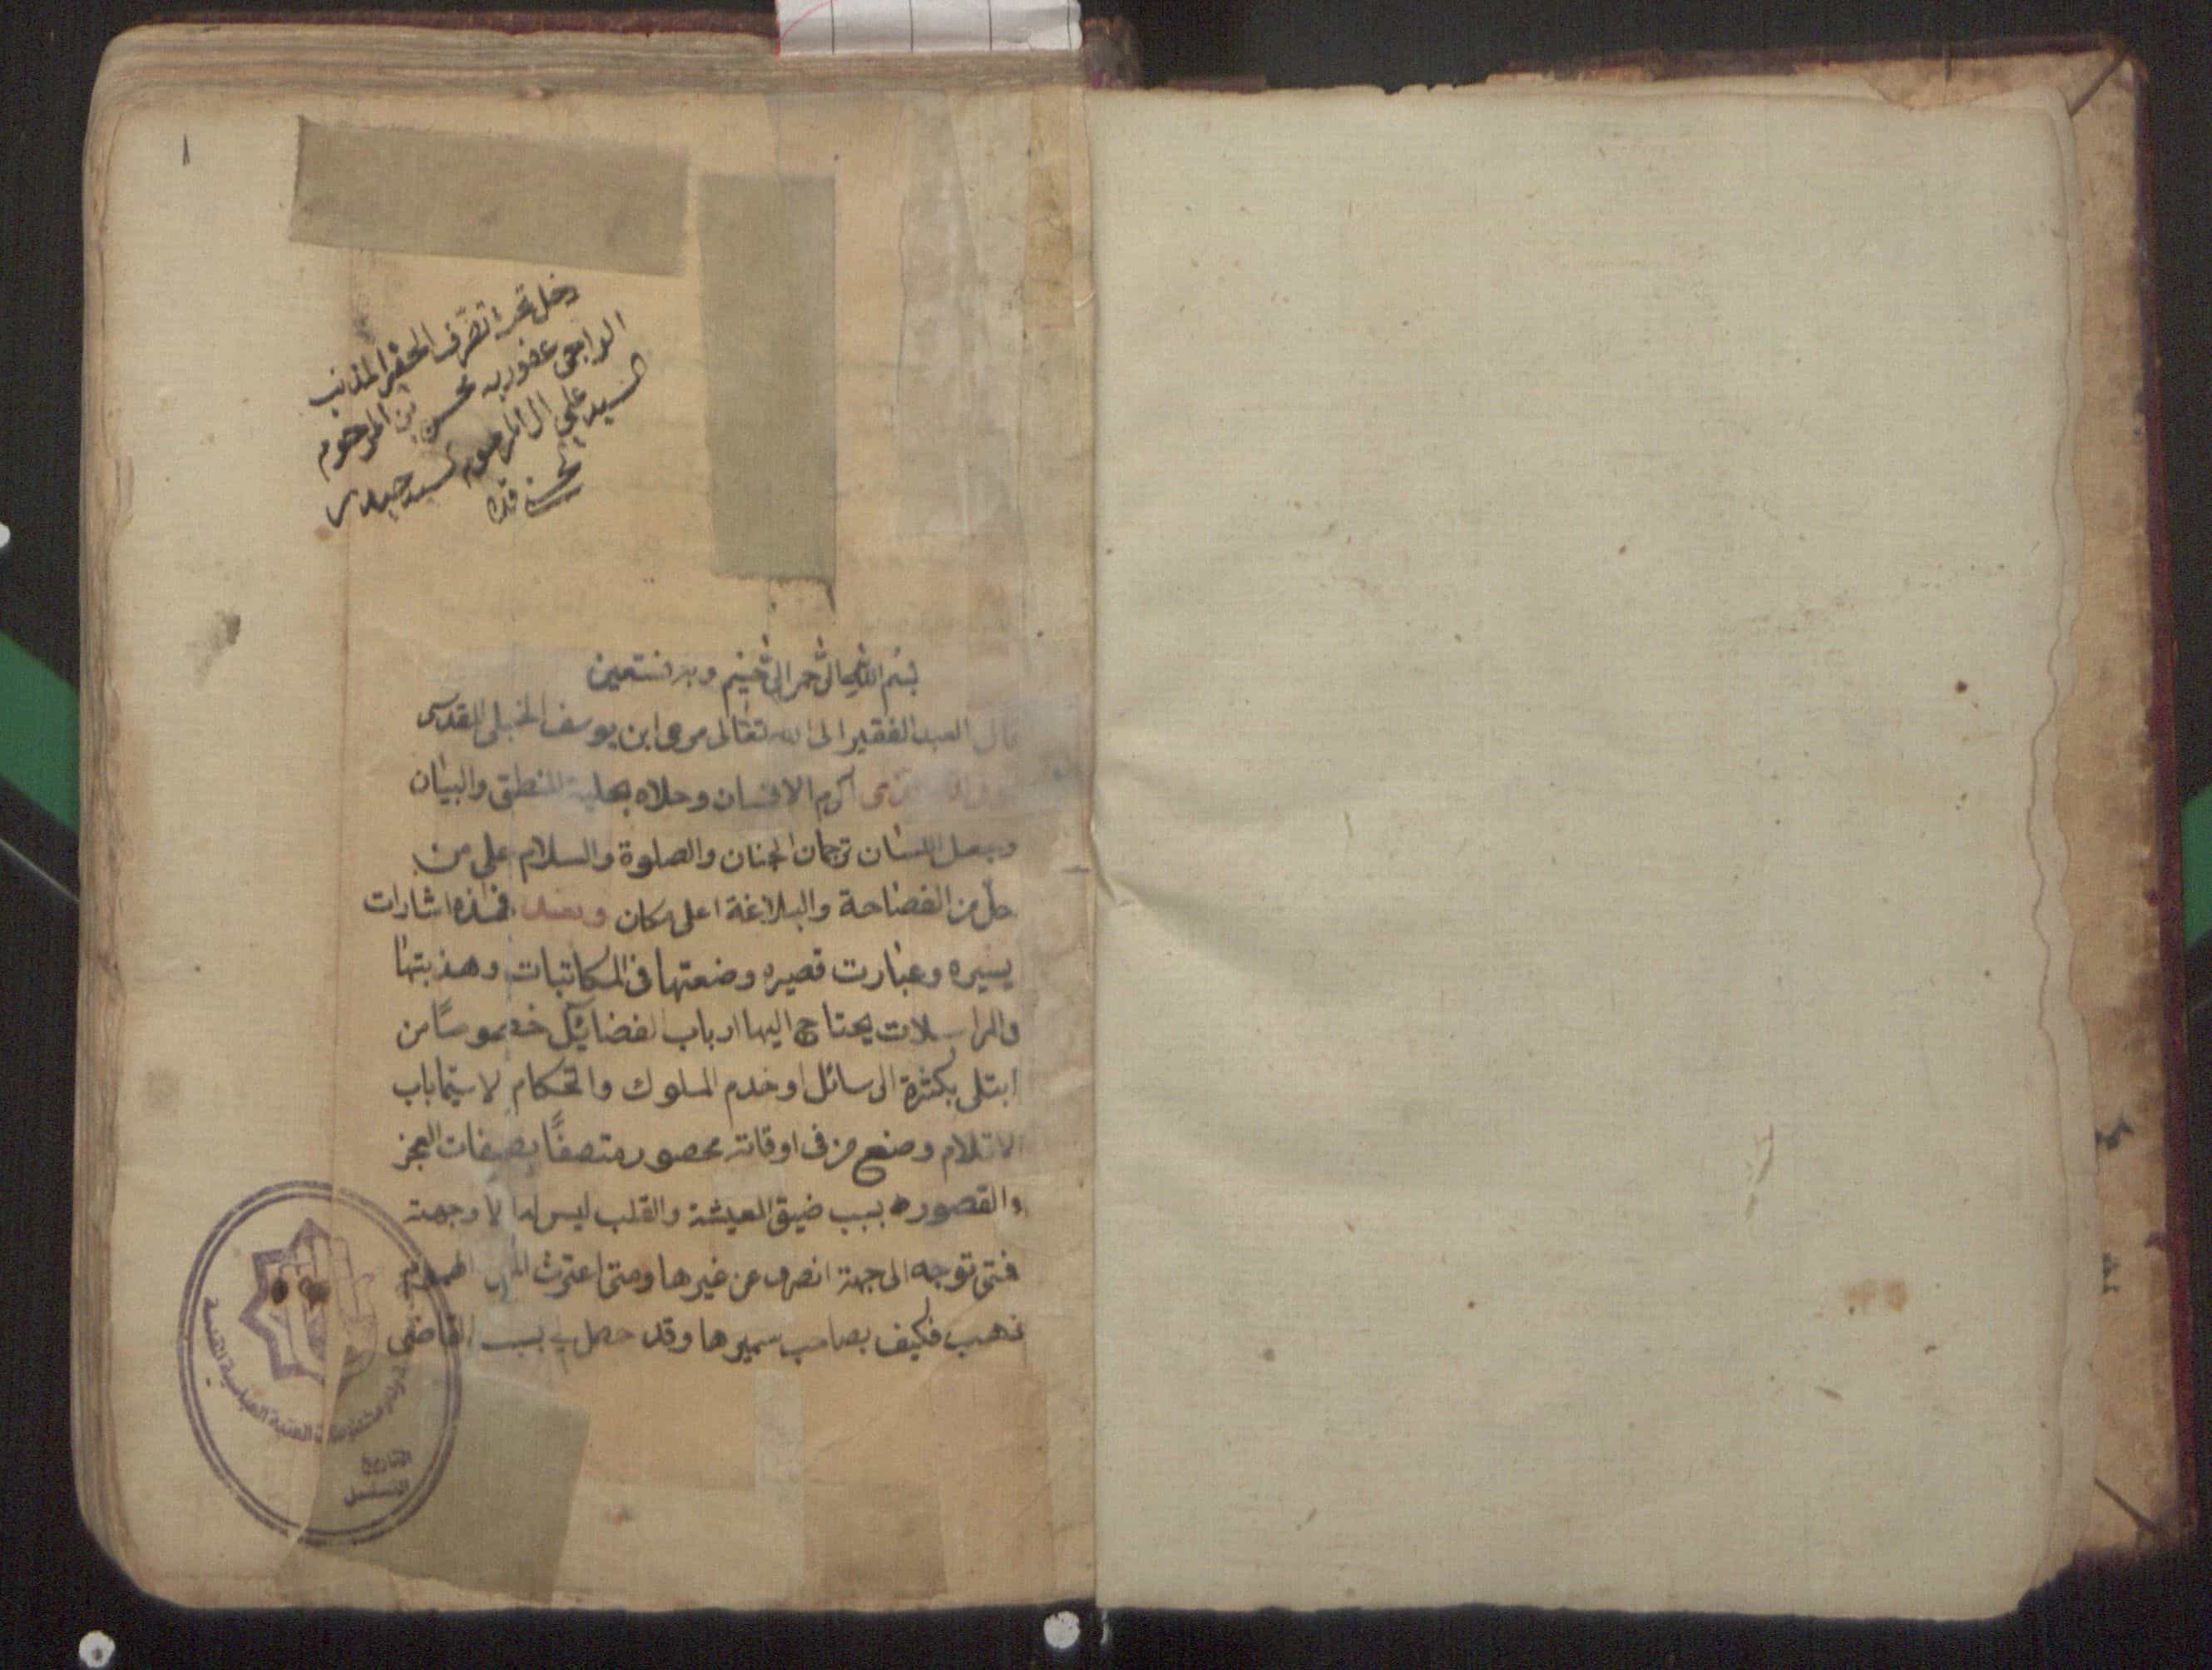 ١
دخل تحت تصرف الحقير المذنب
الراجي عفو ربه محسن بن المرحوم
السيد علي ال المرحوم السيد حيدر
الحسني قده
بسم الله الرحمن الرحيم وبه نستعين
قال العبد الفقير الى الله تعالى مرعى ابن يوسف الحنبلى المقدسى
اكرم الانسان وحلاه بحلية المنطق والبيان
وجعل اللسان ترجمان الجنان والصلوة والسلام على من
حل من الفصاحة والبلاغة اعلى مكان وبعد فهذه اشارات
يسيره وعبارت قصيره وضعتها فى المكاتبات وهذبتها
والمراسلات يحتاج اليها ارباب الفضايل خصوصًا من
ابتلى بكثرة الرسائل او خدم الملوك والحكام لاسيما باب
الاقلام وصنع من فى اوقاته محصور متصفًا بصفات العجز
والقصور بسبب ضيق المعيشة والقلب ليس له الا وجهة
فمتى توجه الى جهة انصرف عن غيرها ومتى اعترت الهموم
نهب فكيف بصاحب سميرها وقد حصل لى بسبب القاضى
مخطوطات العتبة العباسية المقدسة
التاريخ
التسلسل